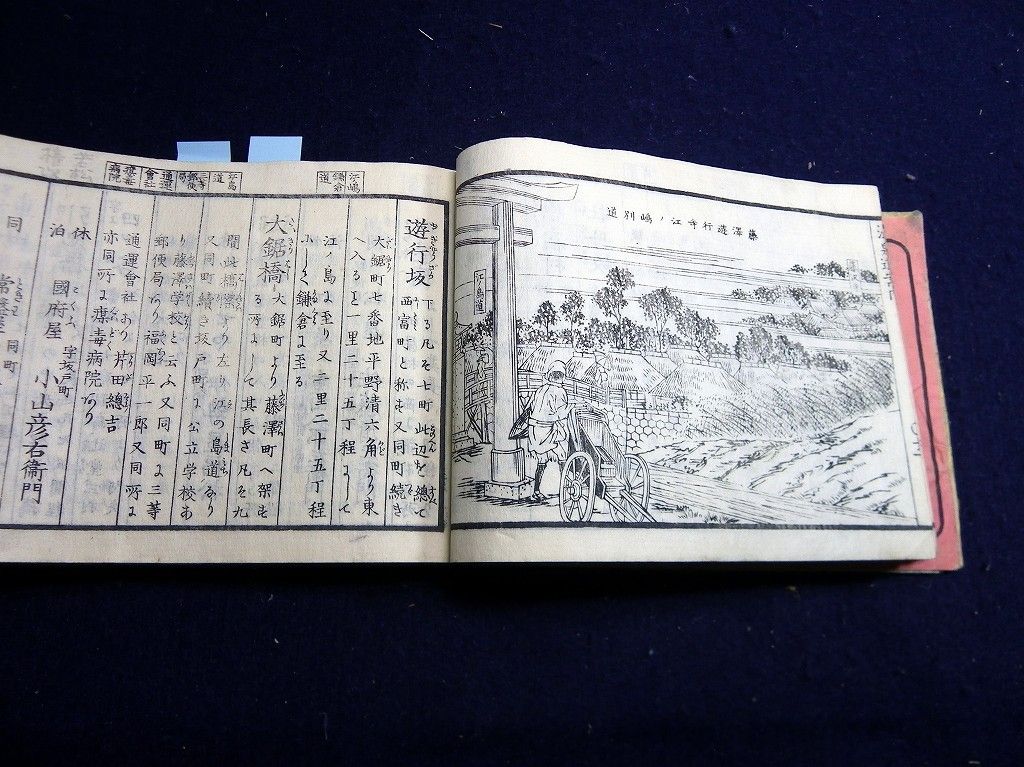 藤澤遊行寺江ノ嶋別道
江島道
江嶋
鎌倉
道
江島
道
三等
郵便
局
通運
會社
黴毒
病院
遊行坂 下る凡そ七町此辺を總て
西富町と称も又同町続き
大鋸町七番地平野清六角より東
へ入ると一里二十五丁程にして
江ノ島に至り又二里二十五丁程
ふして鎌倉に至る
大鋸橋 大鋸町より藤澤町へ架も
る所にして其長さ凡そ九
間此橋際より左り江の島道なり
又同町続き坂戸町に公立学校あ
り藤澤学校と云ふ又同町に三等
郵便局あり福岡平一郎又同所に
通運會社あり片田總吉
亦同所に黴毒病院あり
休
泊
國府屋 字坂戸町 小山彦右衛門
同
常盤屋 同町